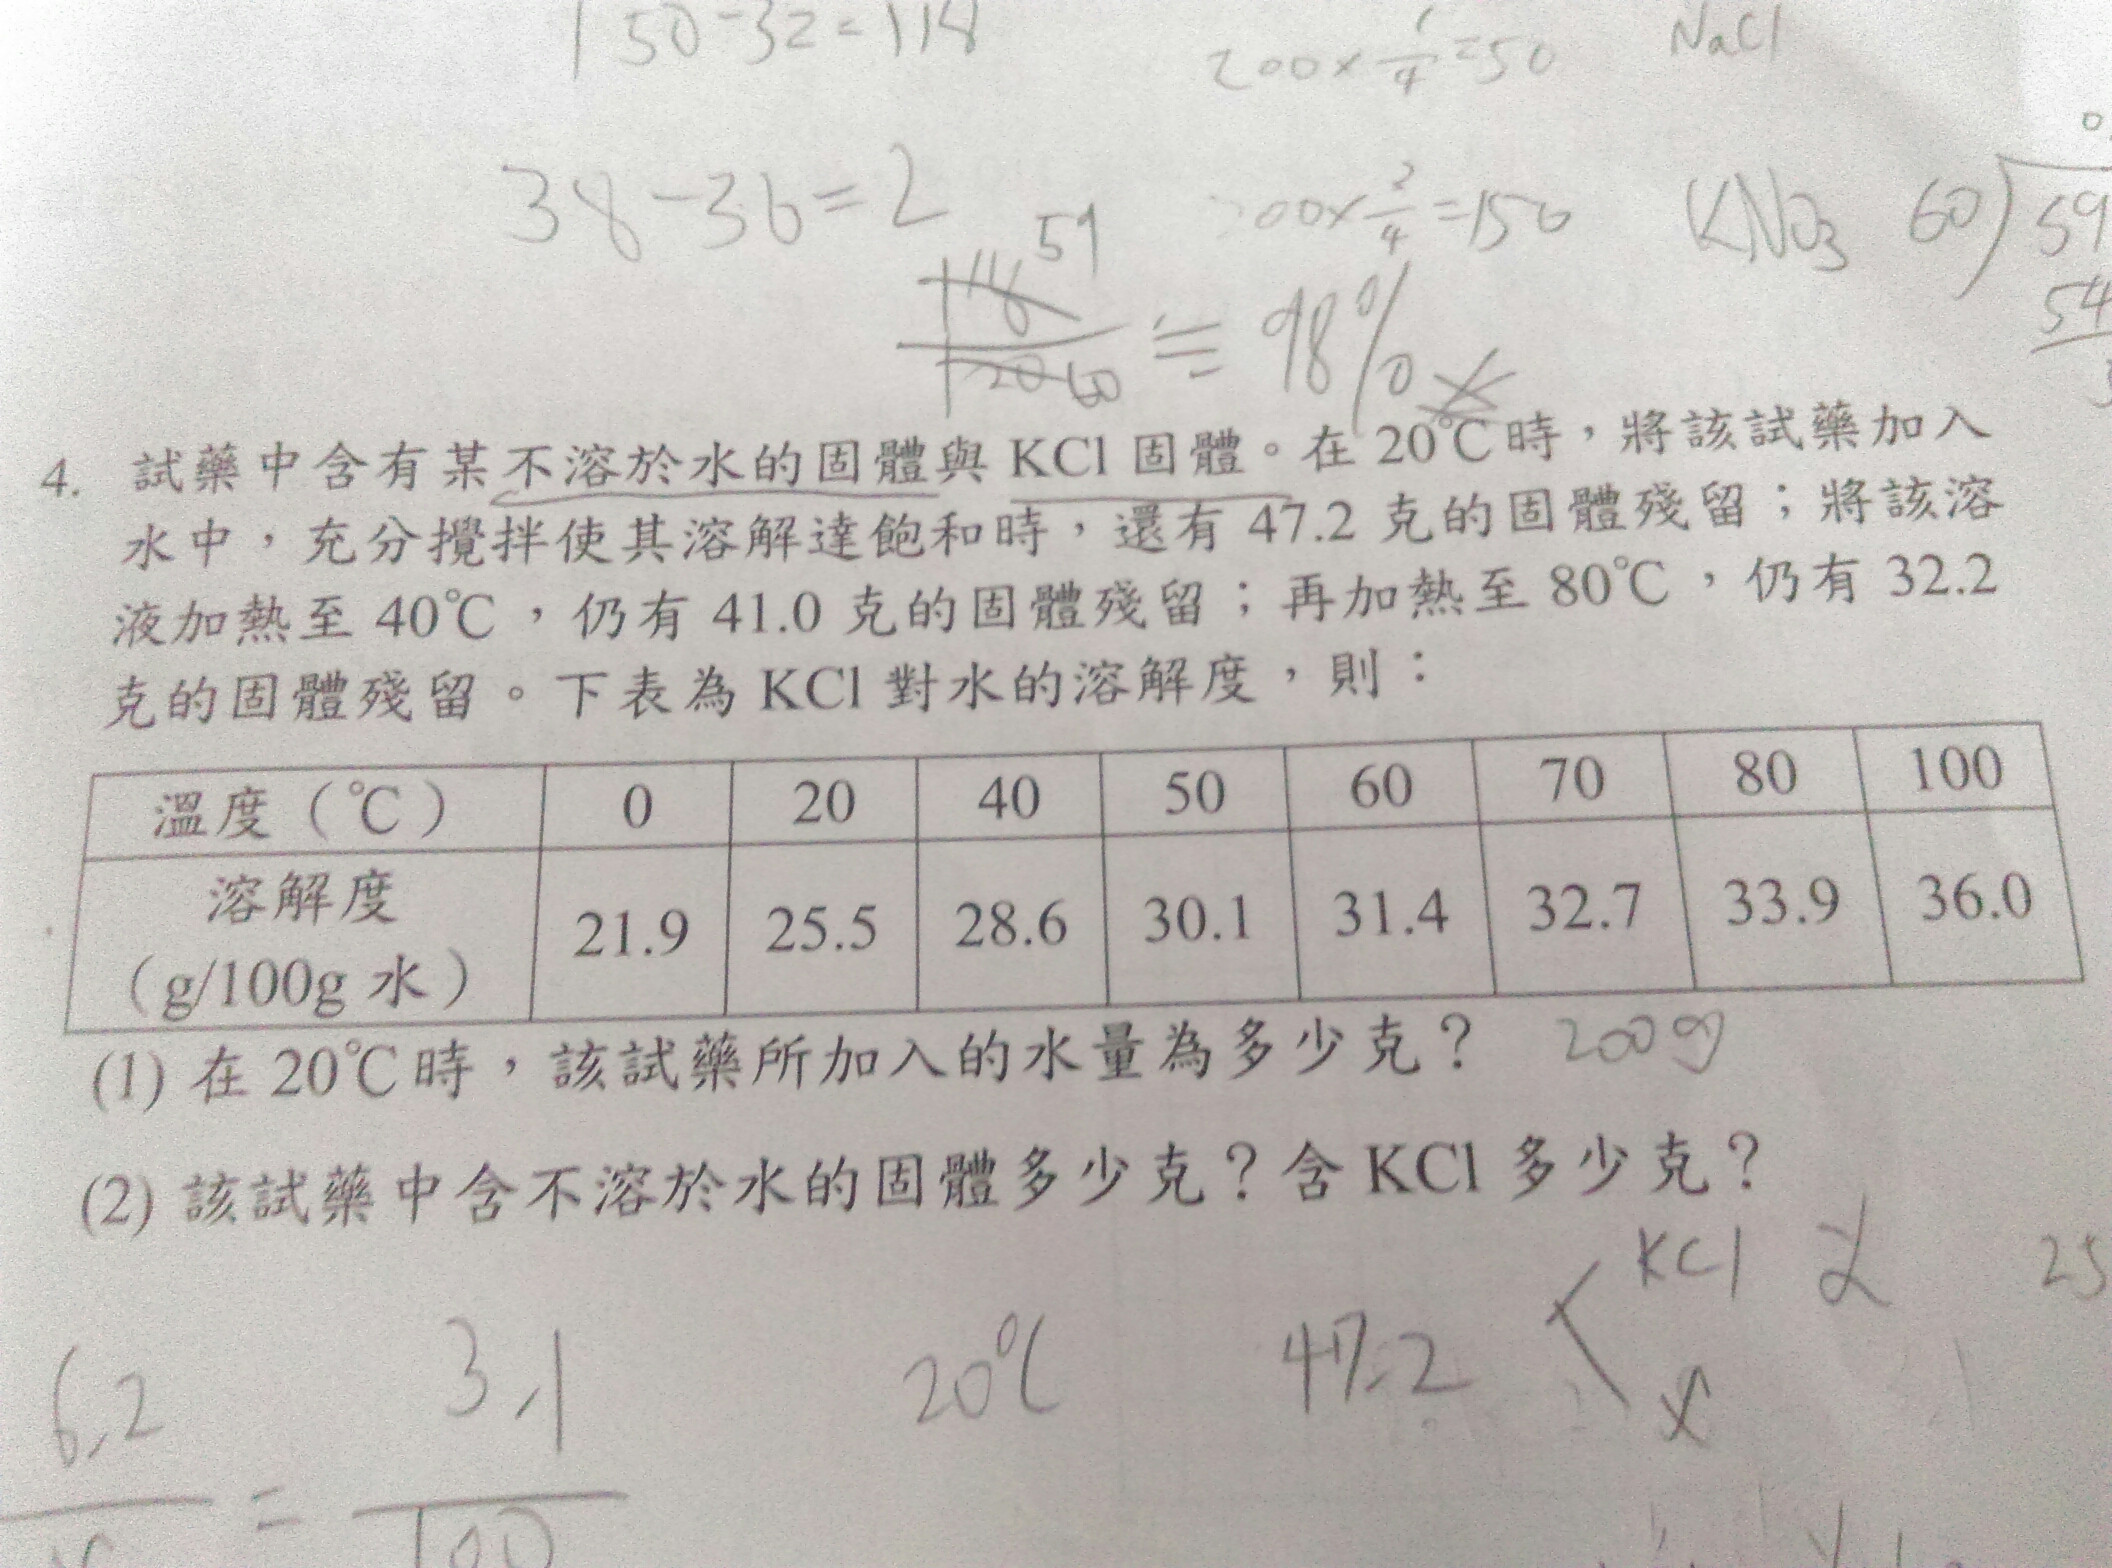 150-32=118
200×1/4=50
NaCl
38-36=2
200×3/4=150
KNO3
60)59
54
118 59
120 60 ≒ 98%
4. 試藥中含有某不溶於水的固體與 KCl 固體。在 20℃時，將該試藥加入
水中，充分攪拌使其溶解達飽和時，還有 47.2 克的固體殘留；將該溶
液加熱至 40℃，仍有 41.0 克的固體殘留；再加熱至 80℃，仍有 32.2
克的固體殘留。下表為 KCl 對水的溶解度，則：
溫度（℃） 0 20 40 50 60 70 80 100
溶解度
（g/100g 水） 21.9 25.5 28.6 30.1 31.4 32.7 33.9 36.0
(1) 在 20℃時，該試藥所加入的水量為多少克？ 200g
(2) 該試藥中含不溶於水的固體多少克？含 KCl 多少克？
KCl
25
6.2
3.1
20℃
47.2
x
=
100